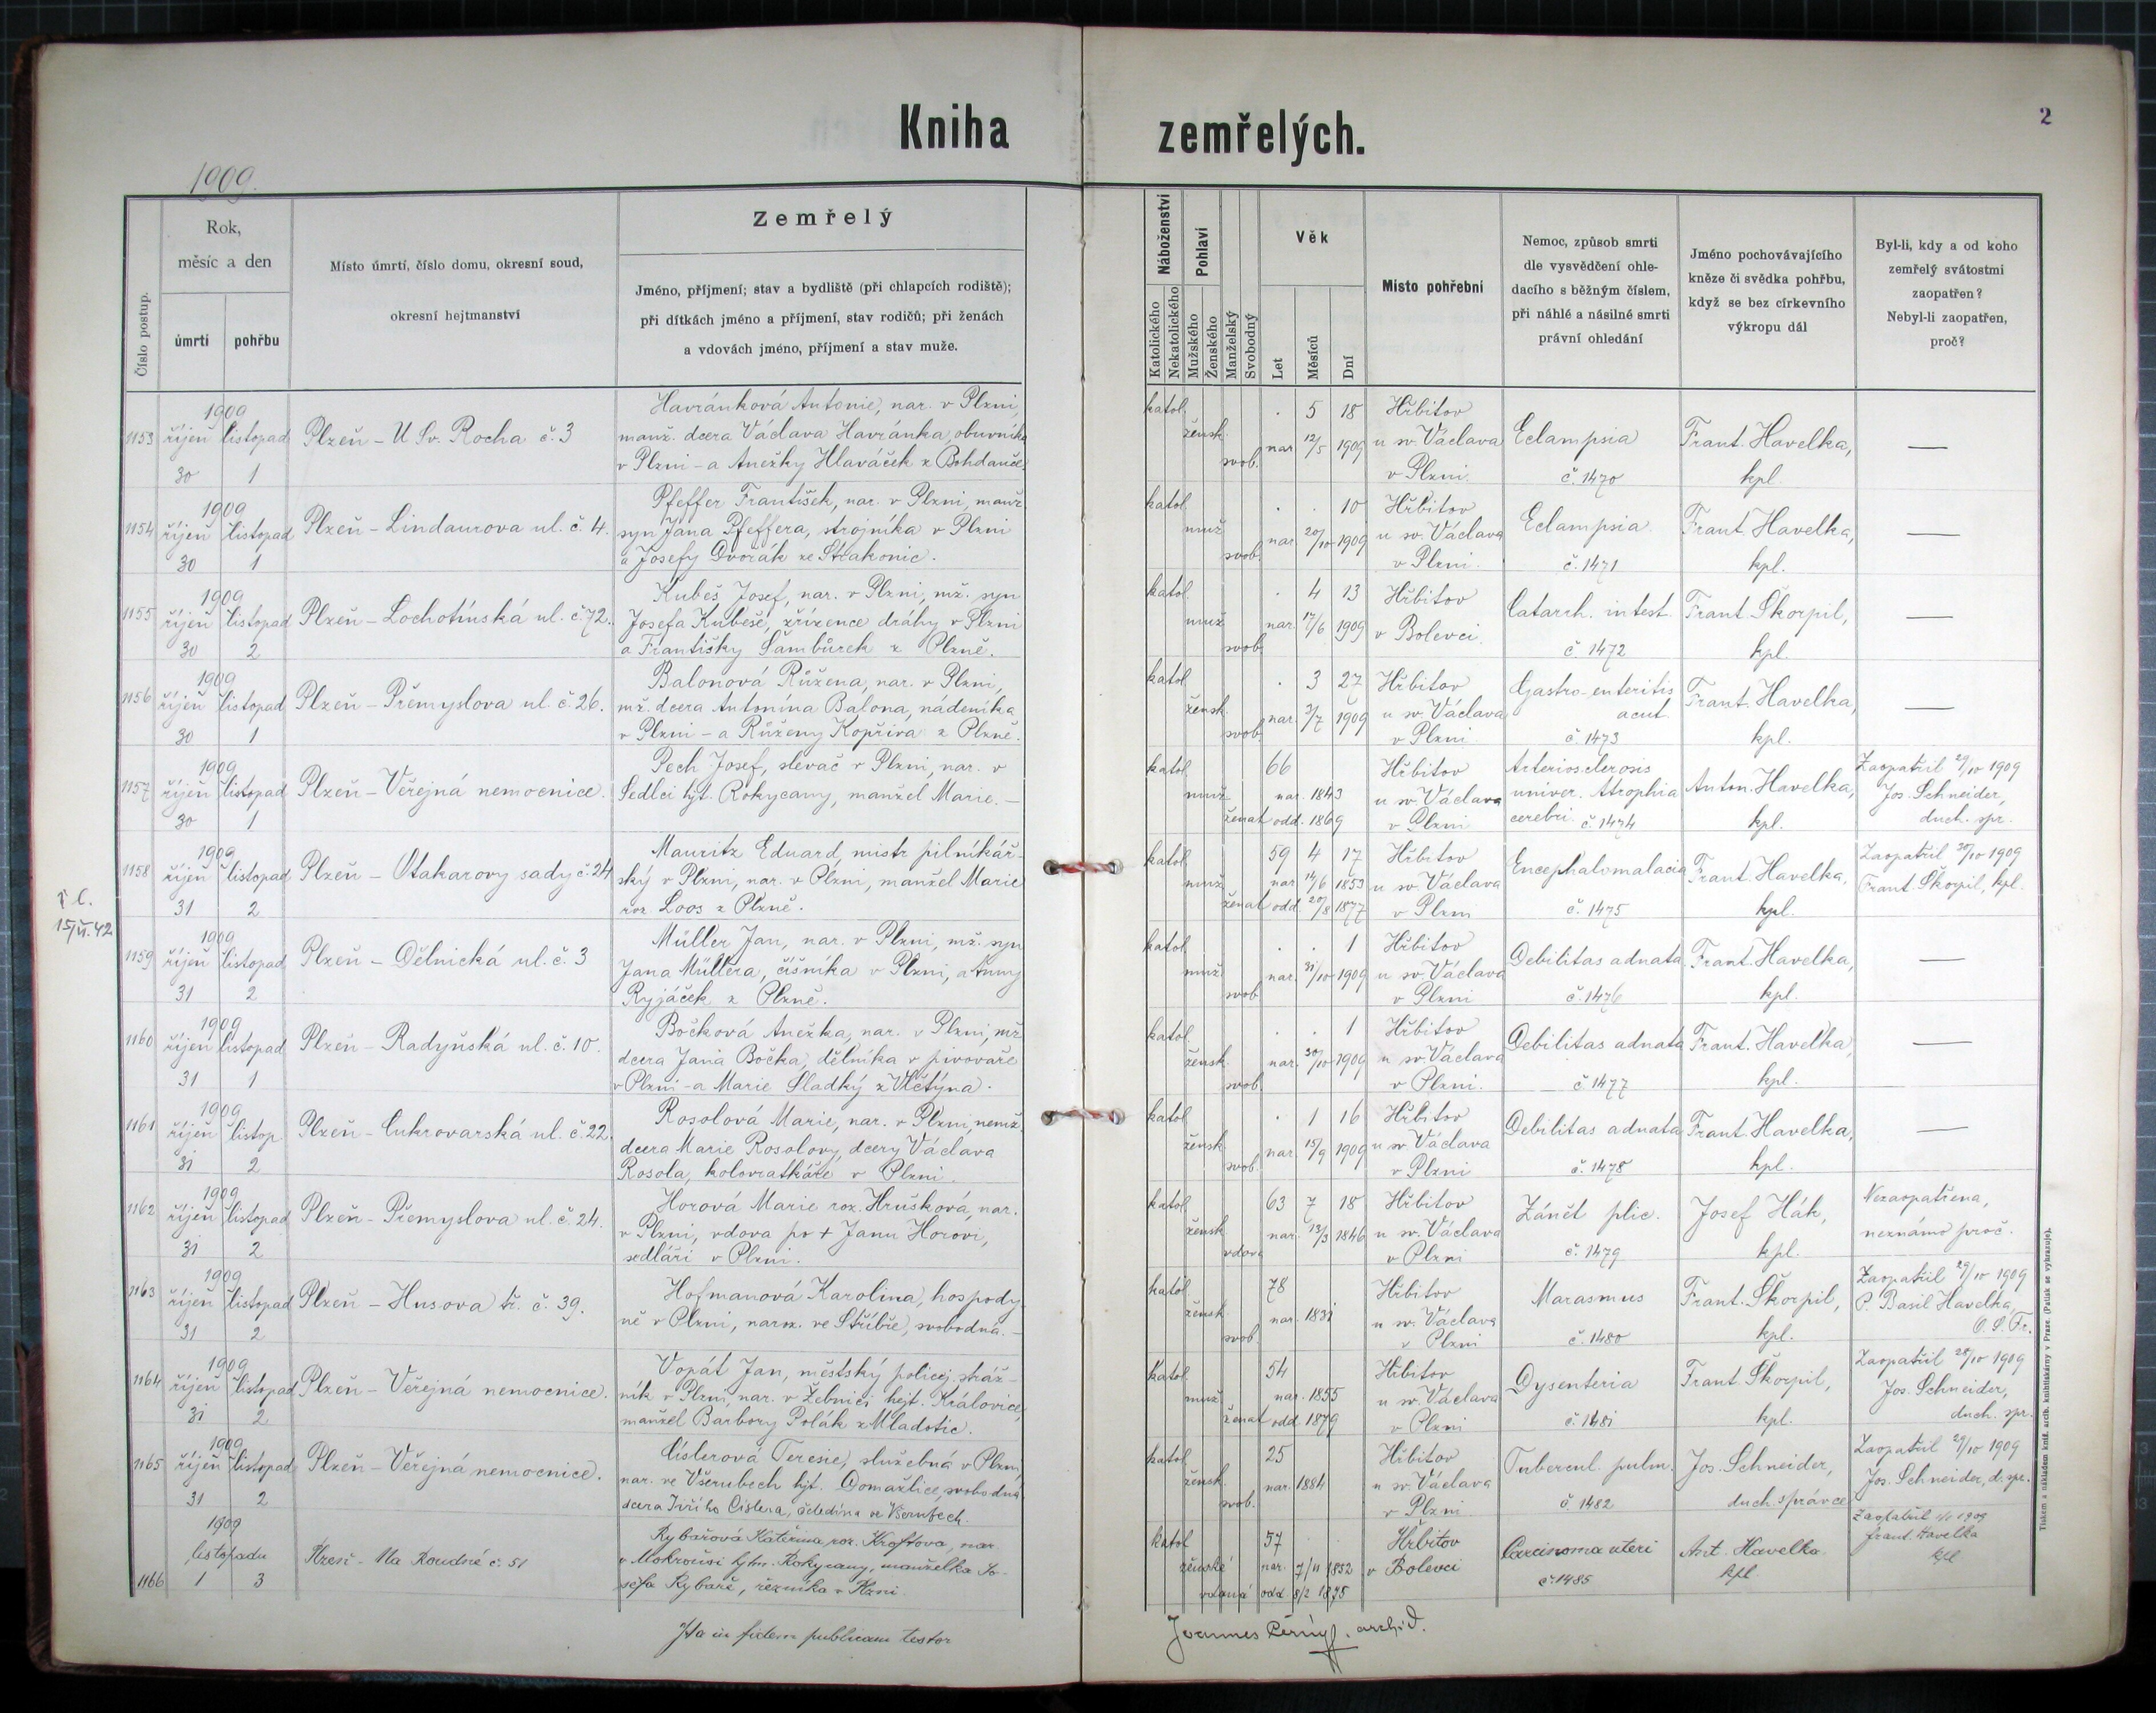 Kniha zemřelých.
2
1909.
Číslo postup.
Rok,
měsíc a den
úmrtí
pohřbu
Místo úmrtí, číslo domu, okresní soud,
okresní hejtmanství
Zemřelý
Jméno, příjmení; stav a bydliště (při chlapcích rodiště);
při dítkách jméno a příjmení, stav rodičů; při ženách
a vdovách jméno, příjmení a stav muže.
Náboženství
Katolického
Nekatolického
Pohlaví
Mužského
Ženského
Manželský
Svobodný
Věk
Let
Měsíců
Dní
Místo pohřební
Nemoc, způsob smrti
dle vysvědčení ohle-
dacího s běžným číslem,
při náhlé a násilné smrti
právní ohledání
Jméno pochovávajícího
kněze či svědka pohřbu,
když se bez církevního
výkropu dál
Byl-li, kdy a od koho
zemřelý svátostmi
zaopatřen?
Nebyl-li zaopatřen,
proč?
1153
1909
říjen listopad
30 1
Plzeň - U Sv. Rocha č. 3
Havránková Antonie, nar. v Plzni,
manž. dcera Václava Havránka, obuvníka
v Plzni - a Anežky Hlaváček z Bohdanče.
katol. 5 18
žensk. nar. 12/5 1909
svob.
Hřbitov
u sv. Václava
v Plzni.
Eclampsia
č. 1470
Frant. Havelka,
kpl.
—
1154
1909
říjen listopad
30 1
Plzeň - Lindaurova ul. č. 4.
Pfeffer František, nar. v Plzni, manž.
syn Jana Pfeffera, strojníka v Plzni
a Josefy Dvořák ze Strakonic.
katol. . . 10
muž. nar. 20/10 1909
svob.
Hřbitov
u sv. Václava
v Plzni.
Eclampsia
č. 1471
Frant. Havelka,
kpl.
—
1155
1909
říjen listopad
30 2
Plzeň - Lochotínská ul. č. 72.
Kubeš Josef, nar. v Plzni, mž. syn
Josefa Kubeše, zřízence dráhy v Plzni
a Františky Šambůrek z Plzně.
katol. . 4 13
muž. nar. 17/6 1909
svob.
Hřbitov
v Bolevci.
Catarrh. intest.
č. 1472
Frant. Škorpil,
kpl.
—
1156
1909
říjen listopad
30 1
Plzeň - Přemyslova ul. č. 26.
Balonová Růžena, nar. v Plzni,
mž. dcera Antonína Balona, nádeníka
v Plzni - a Růženy Kopřiva z Plzně.
katol. . 3 27
žensk. nar. 3/7 1909
svob.
Hřbitov
u sv. Václava
v Plzni
Gastro-enteritis
acut.
č. 1473
Frant. Havelka,
kpl.
—
1157
1909
říjen listopad
30 1
Plzeň - Veřejná nemocnice.
Pech Josef, slevač v Plzni, nar. v
Sedlci hjt. Rokycany, manžel Marie. -
katol. 66
muž. nar. 1843
ženat odd. 1869
Hřbitov
u sv. Václava
v Plzni
Arteriosclerosis
univer. Atrophia
cerebri. č. 1474
Anton. Havelka,
kpl.
Zaopatřil 29/10 1909
Jos. Schneider,
duch. spr.
1158
1909
říjen listopad
31 2
Plzeň - Otakarovy sady č. 24
Mauritz Eduard, mistr pilníkář-
ský v Plzni, nar. v Plzni, manžel Marie
roz. Loos z Plzně.
katol. 59 4 17
muž. nar. 14/6 1853
ženat odd. 20/8 1877
Hřbitov
u sv. Václava
v Plzni
Encephalomalacia
č. 1475
Frant. Havelka,
kpl.
Zaopatřil 30/10 1909
Frant. Škorpil, kpl.
15/VI.42
1159
1909
říjen listopad
31 2
Plzeň - Dělnická ul. č. 3
Müller Jan, nar. v Plzni, mž. syn
Jana Müllera, číšníka v Plzni, a Anny
Ryjáček z Plzně.
katol. . . 1
muž. nar. 31/10 1909
svob.
Hřbitov
u sv. Václava
v Plzni
Debilitas adnata
č. 1476
Frant. Havelka,
kpl.
—
1160
1909
říjen listopad
31 1
Plzeň - Radyňská ul. č. 10.
Bočková Anežka, nar. v Plzni, mž.
dcera Jana Bočka, dělníka v pivovaře
v Plzni - a Marie Sladký z Vlčtýna.
katol. . . 1
žensk. nar. 30/10 1909
svob.
Hřbitov
u sv. Václava
v Plzni.
Debilitas adnata
č. 1477
Frant. Havelka,
kpl.
—
1161
1909
říjen listop.
31 2
Plzeň - Cukrovarská ul. č. 22.
Rosolová Marie, nar. v Plzni, nemž.
dcera Marie Rosolovy, dcery Václava
Rosola, kolovratkáře v Plzni.
katol. . 1 16
žensk. nar. 15/9 1909
svob.
Hřbitov
u sv. Václava
v Plzni
Debilitas adnata
č. 1478
Frant. Havelka,
kpl.
—
1162
1909
říjen listopad
31 2
Plzeň - Přemyslova ul. č. 24.
Horová Marie roz. Hrušková, nar.
v Plzni, vdova po + Janu Horovi,
sedláři v Plzni.
katol. 63 7 18
žensk. nar. 13/3 1846
vdova
Hřbitov
u sv. Václava
v Plzni
Zánět plic.
č. 1479
Josef Hák,
kpl.
Nezaopatřena,
neznámo proč.
1163
1909
říjen listopad
31 2
Plzeň - Husova tř. č. 39.
Hofmanová Karolina, hospody-
ně v Plzni, naroz. ve Stříbře, svobodná. -
katol. 78
žensk. nar. 1831
svob.
Hřbitov
u sv. Václava
v Plzni
Marasmus
č. 1480
Frant. Škorpil,
kpl.
Zaopatřil 29/10 1909
P. Basil Havelka,
O. S. Fr.
1164
1909
říjen listopad
31 2
Plzeň - Veřejná nemocnice.
Vopát Jan, městský policej. stráž-
ník v Plzni, nar. v Žebnici hejt. Kralovice,
manžel Barbory Polák z Mladotic.
Katol. 54
muž. nar. 1855
ženat odd. 1879
Hřbitov
u sv. Václava
v Plzni
Dysenteria
č. 1481
Frant. Škorpil,
kpl.
Zaopatřil 28/10 1909
Jos. Schneider,
duch. spr.
1165
1909
říjen listopad
31 2
Plzeň - Veřejná nemocnice.
Cislerová Teresie, služebná v Plzni,
nar. ve Všerubech hjt. Domažlice, svobodná
dcera Jiřího Cislera, čeledína ve Všerubech.
katol. 25
žensk. nar. 1884
svob.
Hřbitov
u sv. Václava
v Plzni.
Tubercul. pulm.
č. 1482
Jos. Schneider,
duch. správce
Zaopatřil 29/10 1909
Jos. Schneider, d. spr.
1166
1909
listopadu
1 3
Plzeň - Na Roudné č. 51
Rybařová Kateřina, roz. Kroftova, nar.
v Mokrouši hjtm. Rokycany, manželka Jo-
sefa Rybaře, řezníka v Plzni.
katol 57
ženské nar. 7/11 1852
vdaná odd 8/2 1875
Hřbitov
v Bolevci
Carcinoma uteri
č. 1485
Ant. Havelka
kpl
Zaopatřil 1/11 1909
Frant. Havelka
kpl
Ita in fidem publicam testor
Joannes Černý, archid.
Tiskem a nákladem kníž. arcib. knihtiskárny v Praze. (Patisk se vyhrazuje).